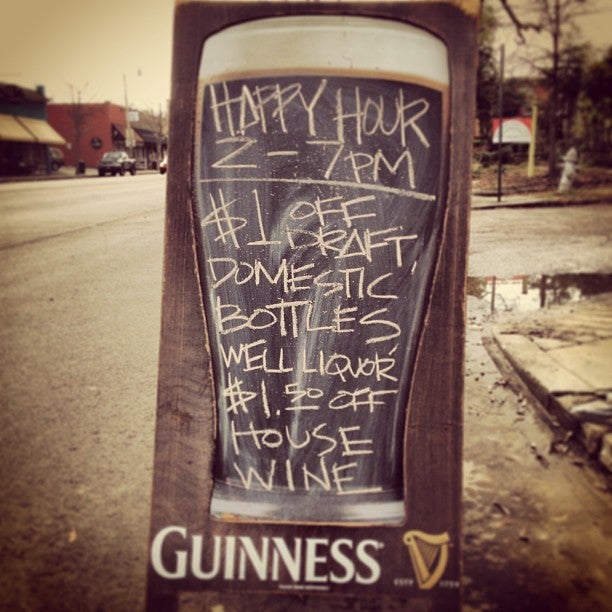 HAPPY HOUR
2 - 7PM
$1 OFF
DRAFT,
DOMESTIC
BOTTLES
WELL LIQUOR
$1.50 OFF
HOUSE
WINE
GUINNESS
ESTD 1759